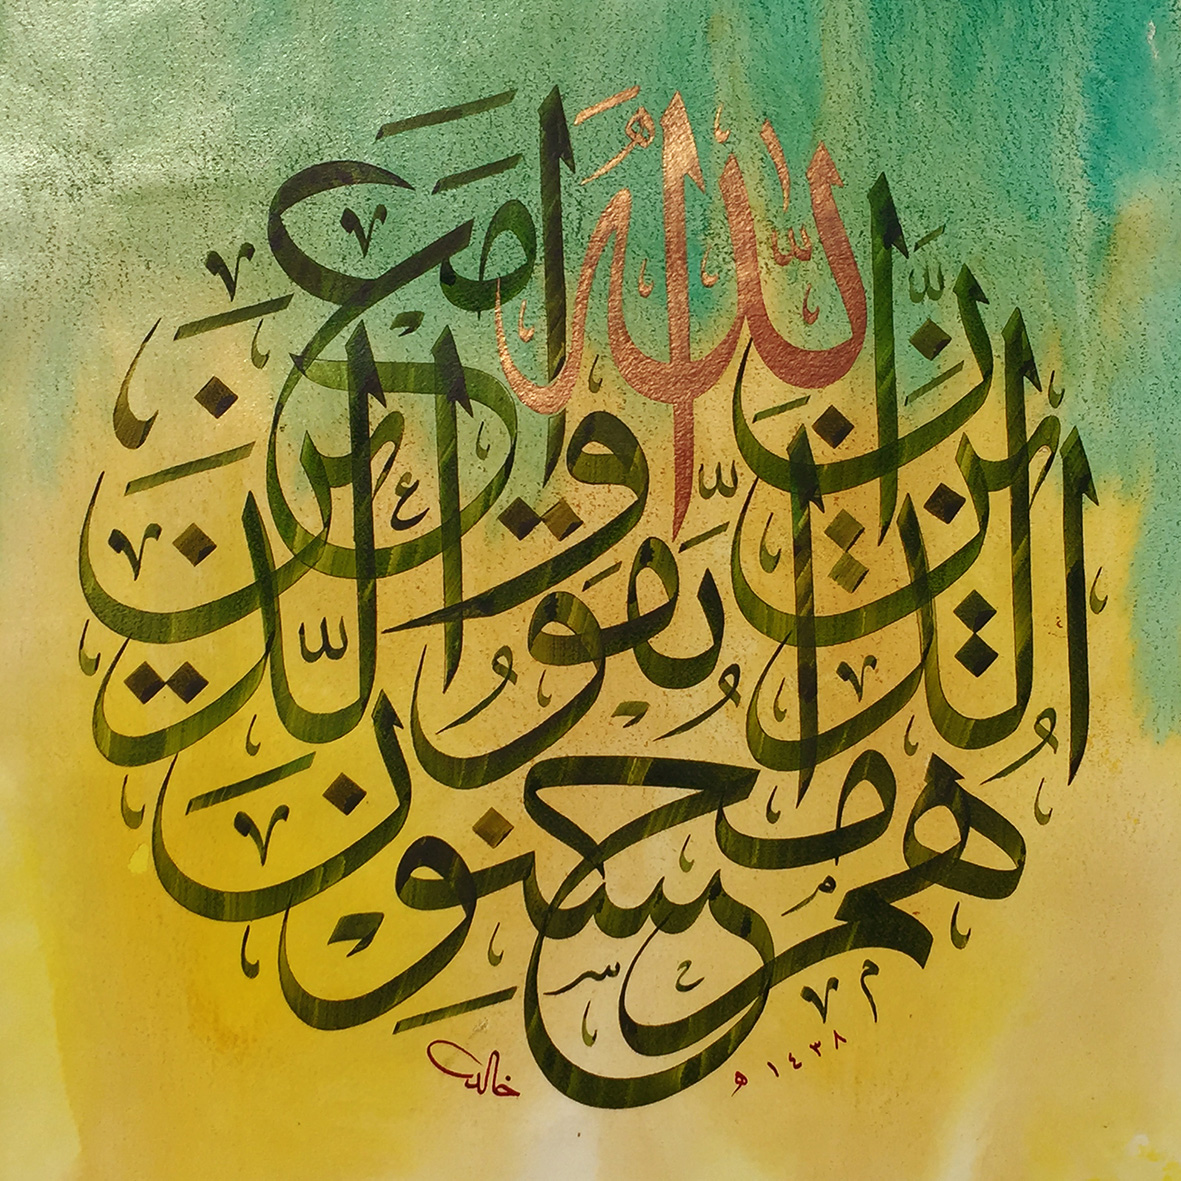 إِنَّ اللَّهَ مَعَ الَّذِينَ اتَّقَوا وَّالَّذِينَ هُم مُّحْسِنُونَ
خالد
١٤٣٨ هـ